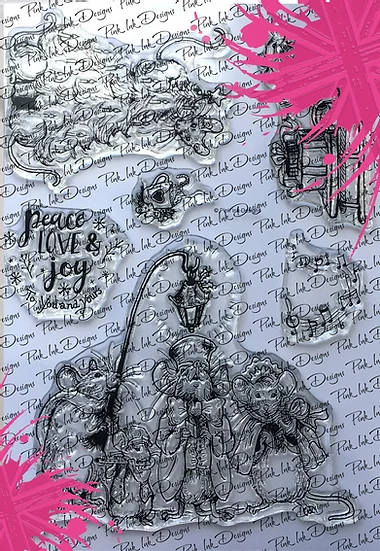 Pink Ink Designs
peace
LOVE &
joy
To you and yours